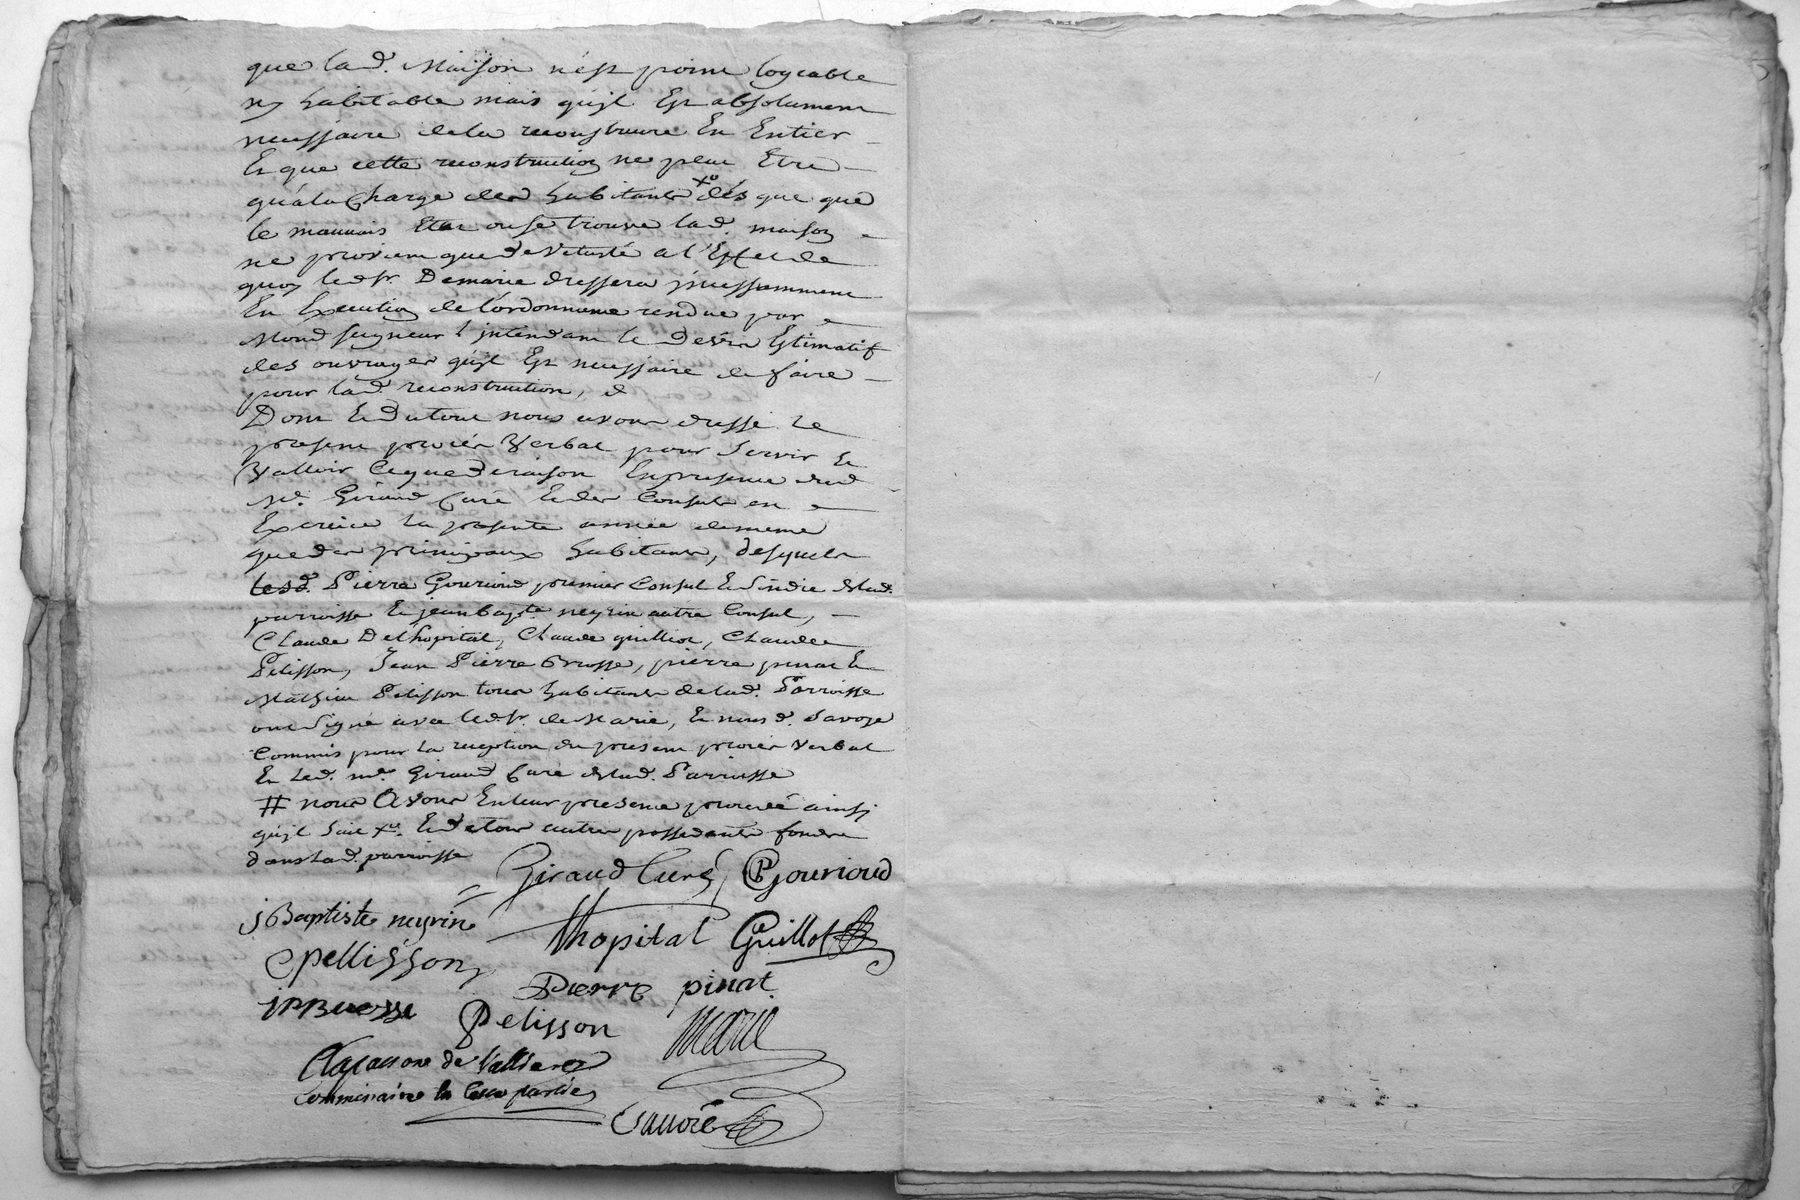 que lad. Maison n'est point logeable
ny habitable mais qu'jl Est absolument
necessaire dela reconstruire En Entier
Et que cette reconstruction ne peut Etre
qu'àla Charge des habitants Xu dès que que
le mauvais Etat ou se trouve lad. maison
ne provient que de Vetusté a l'Effet de
quoy led. Sr. Demarie dressera jncessamment
En Execution de l'ordonnance rendue par
Mond Seigneur l'jntendant le Devis Estimatif
des ouvrages qu'jl Est necessaire de faire
pour lad. reconstruction, &
Dont Et Du tout nous avons dressé le
present procès Verbal pour Servir Et
Valloir Ce que De raison En presence dud
Mr. Giraud Curé Et des Consuls en
Exercice la presente année de meme
que des principaux habitants, desquels
lesd. Pierre Gourioud premier Consul Et Sindic delad.
parroisse Et jean bapte. neyrin autre Consul,
Claude Delhopital, Claude guilliot, Claude
Pelisson, Jean Pierre Brosse, pierre pinat Et
Mathieu Pelisson tous habitants delad. Parroisse
ont Signé avec led. Sr. de Marie, Et nous d. Savoye
Commis pour la reception du present procès Verbal
Et led. mr. Giraud Curé delad. Parroisse
# nous Avons En leur presence procedé ainsi
qu'jl Suit Xu. Et de tous autres possedants fonds
dans lad. parroisse
Giraud Curé PGourioud
jBaptiste neyrin lhopital Guillot
Cpellisson Pierre pinat
jp Brosse Pelisson Marie
de Vallier
Commissaire En Cette partie
Savoïe